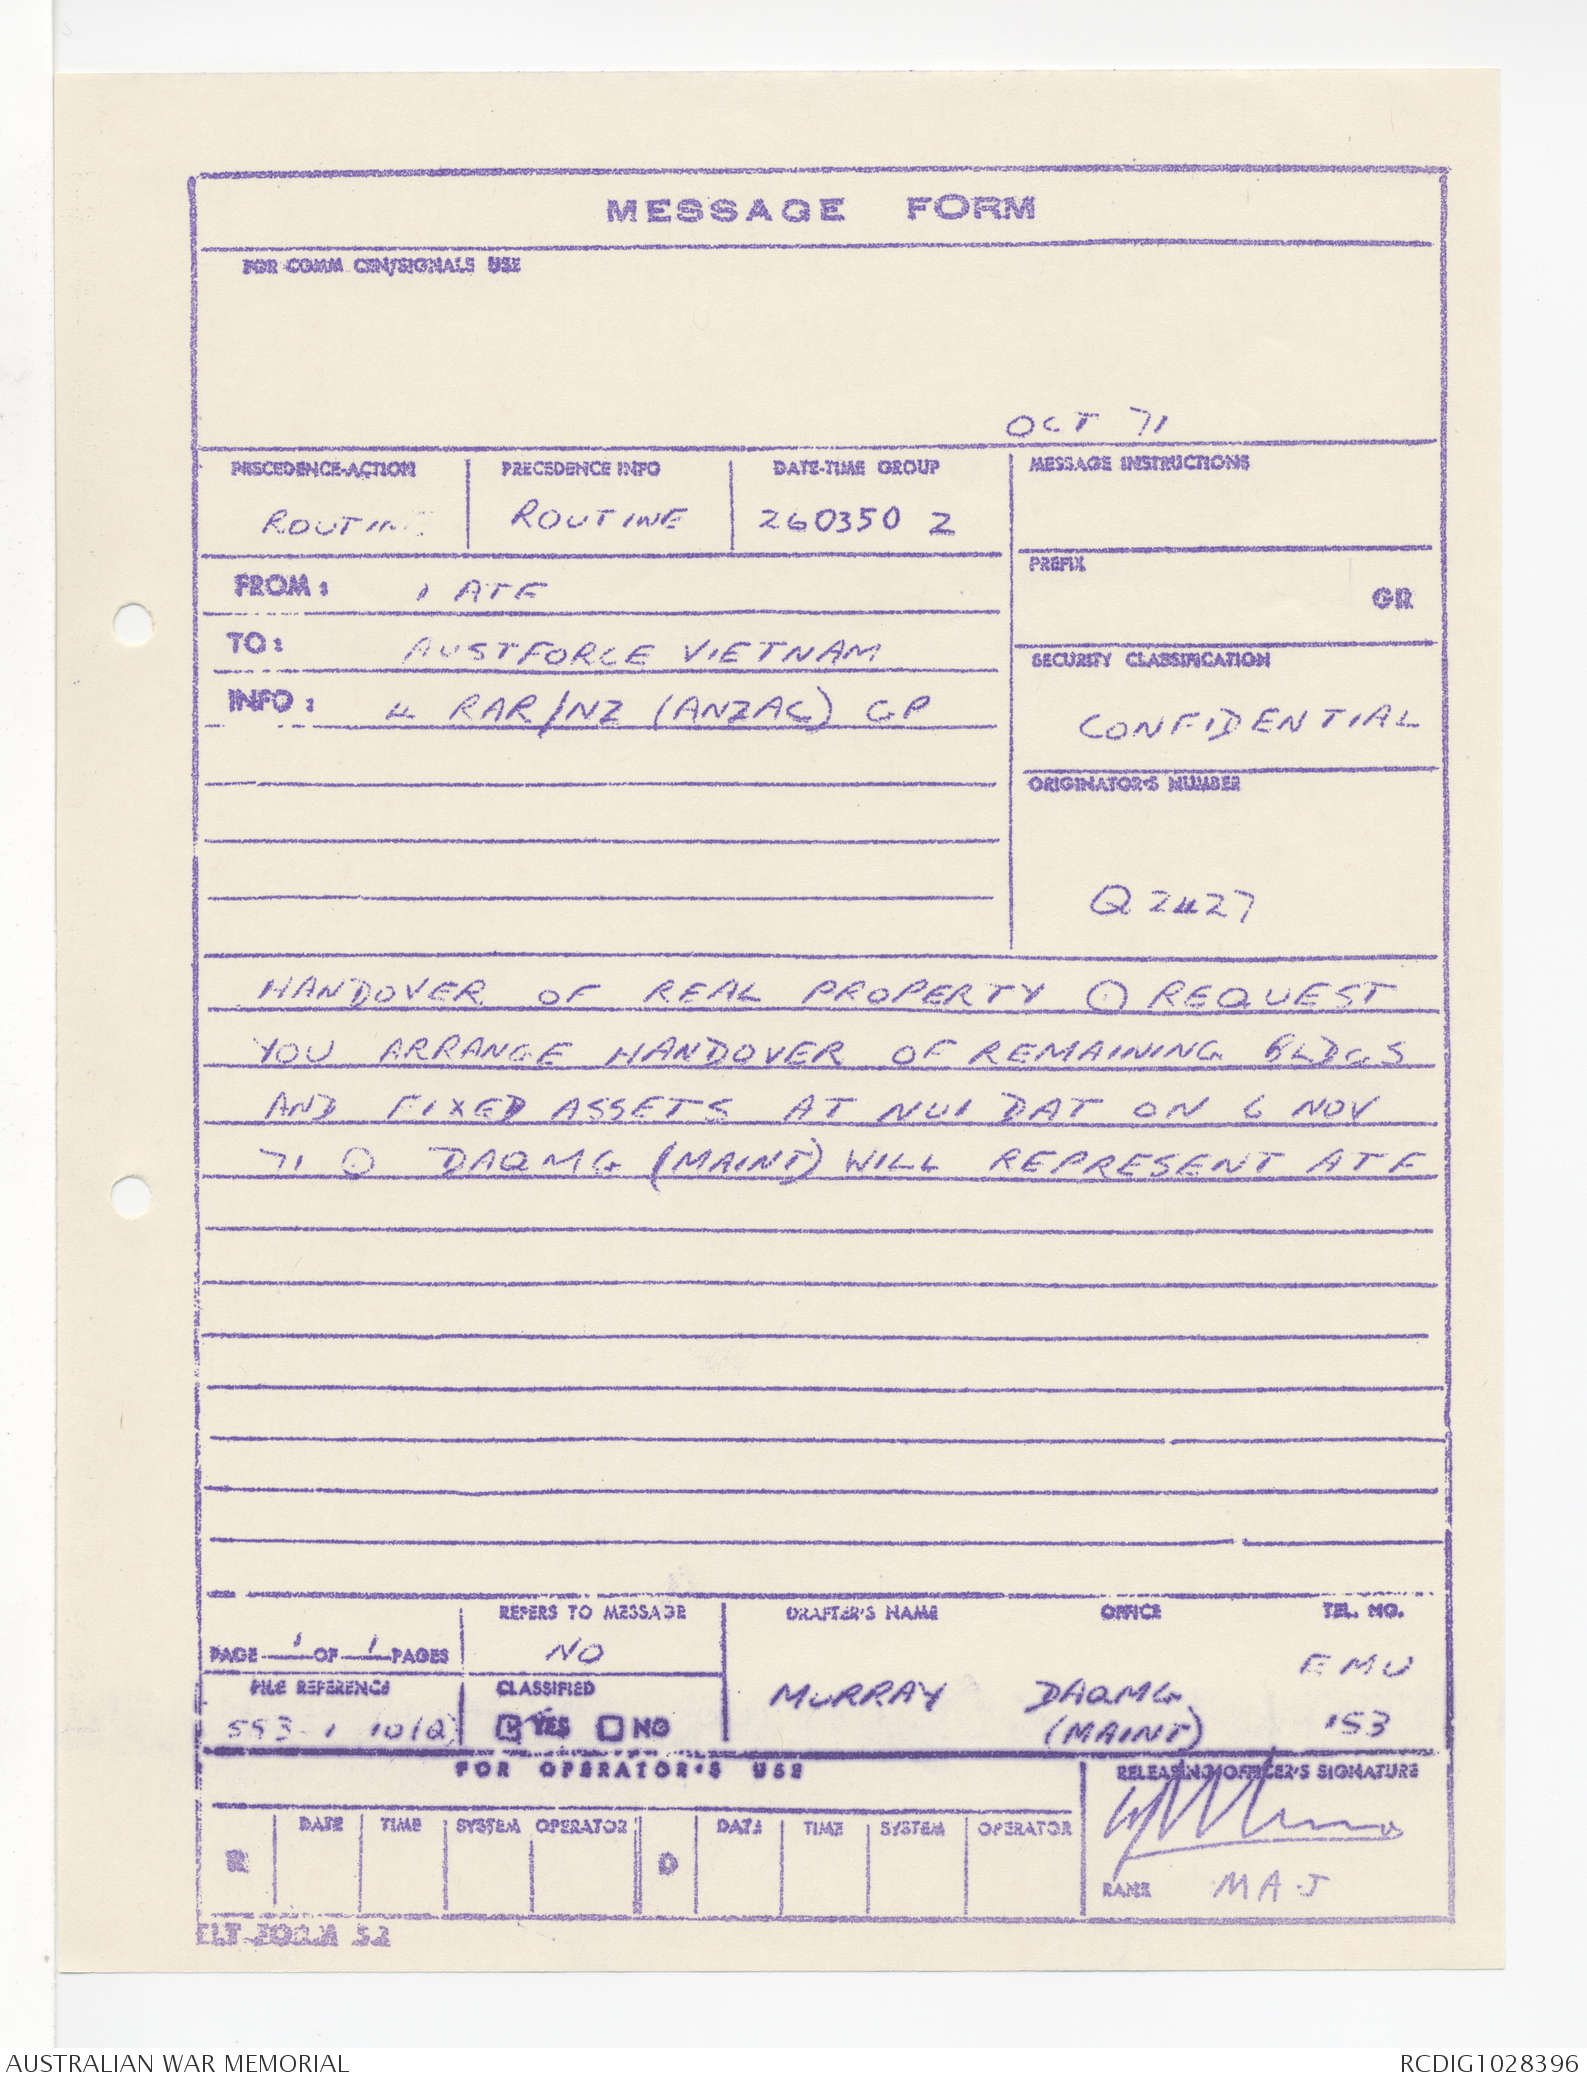 MESSAGE FORM
FOR COMM CEN/SIGNALS USE
OCT 71
PRECEDENCE-ACTION
ROUTINE
PRECEDENCE INFO
ROUTINE
DATE-TIME GROUP
260350 Z
MESSAGE INSTRUCTIONS
FROM: 1 ATF
PREFIX
GR
TO: AUSTFORCE VIETNAM
SECURITY CLASSIFICATION
CONFIDENTIAL
INFO: 4 RAR/NZ (ANZAC) GP
ORIGINATOR'S NUMBER
Q 2427
HANDOVER OF REAL PROPERTY ⊙ REQUEST
YOU ARRANGE HANDOVER OF REMAINING BLDGS
AND FIXED ASSETS AT NUI DAT ON 6 NOV
71 ⊙ DAQMG (MAINT) WILL REPRESENT ATF
PAGE 1 OF 1 PAGES
REFERS TO MESSAGE
NO
DRAFTER'S NAME
MURRAY
OFFICE
DAQMG
(MAINT)
TEL. NO.
EMU
153
FILE REFERENCE
553-1-10(Q)
CLASSIFIED
YES NO
FOR OPERATOR'S USE
RELEASING OFFICER'S SIGNATURE
R DATE TIME SYSTEM OPERATOR D DATE TIME SYSTEM OPERATOR
RANK MAJ
FORM 52
AUSTRALIAN WAR MEMORIAL
RCDIG1028396